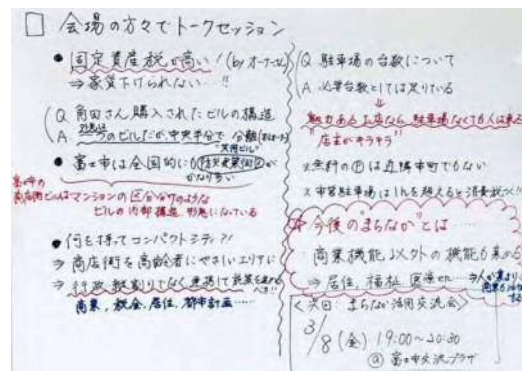 会場の方々でトークセッション
● 固定資産税が高い！(by オーナーさん)
⇒ 家賃下げられない…!!
Q 角田さん購入されたビルの構造
A 外見は一つのビルだが中央半分で分離
"共同ビル"
● 富士市は全国的にも防災建築街区が
かなり多い
富士市の
商店街ビルはマンションの区分分けのような
ビルの内部構造、形態になっている
● 何を持ってコンパクトシティ?!
⇒ 商店街を高齢者にやさしいエリアに
⇒ 行政、縦割りでなく連携して政策を進める
べき!!
商業、税金、居住、都市計画……
Q 駐車場の台数について
A 必要台数としては足りている
魅力あるお店なら、駐車場なくても人は来る
"店主がキラキラ"
※無料のⓅは近隣市町でもない
※市営駐車場は1hを超えると
今後の"まちなか"とは……
商業機能以外の機能も来る
⇒ 居住、福祉、医療 etc…
⇒人が集まり
商業も
<次回: まちなか活用交流会>
3/8 (金) 19:00〜20:30
@ 富士市交流プラザ